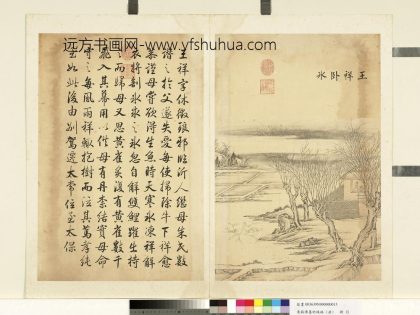 远方书画网-www.yfshuhua.com
王祥卧氷
王祥字休徵琅邪臨沂人繼母朱氏數
譖之於父遂失愛每使掃除牛下祥愈
恭謹母嘗欲得生魚時天寒氷凍祥解
衣將剖氷求之氷忽自解雙鯉躍出持
之而歸母又思黃雀炙復有黃雀數十
飛入其幕用以供母有丹柰結實母命
守之每風雨祥輒抱樹而泣其篤孝純
至如此後由別駕遷太常位至太保